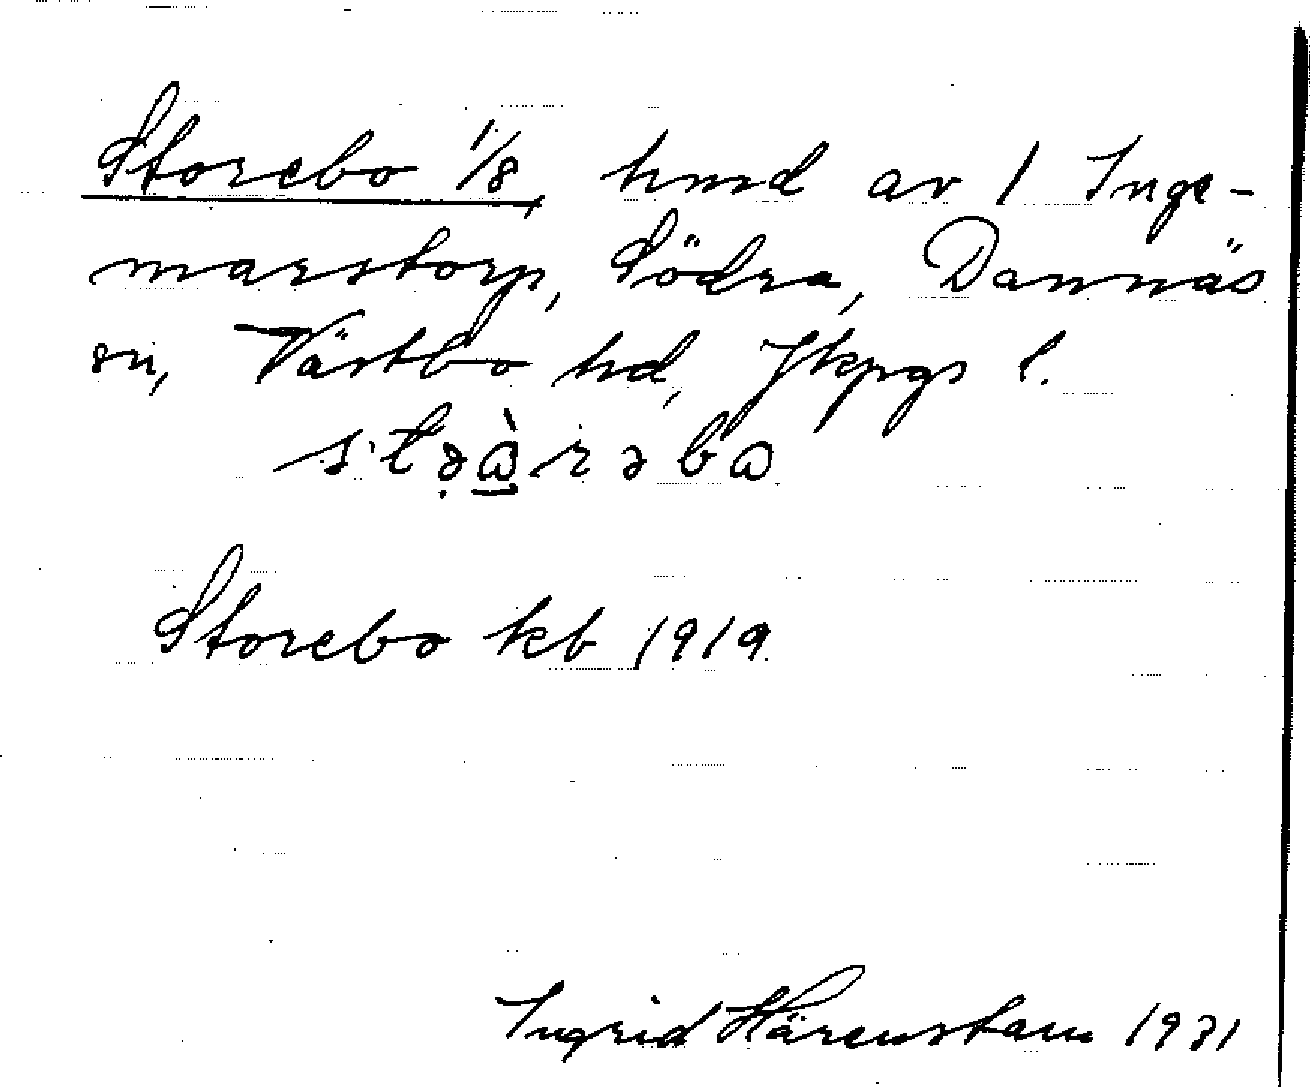 Storebo 1/8, hmd av 1 Inge-
marstorp, Södra, Dannäs
sn, Västbo hd, Jkpgs l.
Storebo kb 1919
Ingrid Härenstam 1931